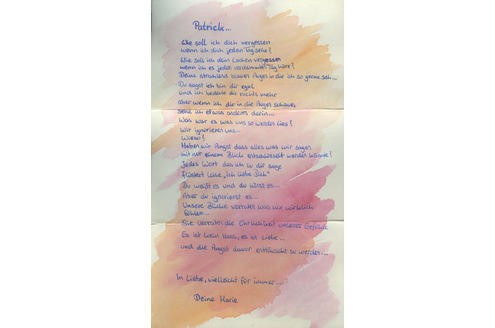 Patrick...
Wie soll ich dich vergessen
wenn ich dich jeden Tag sehe?
Wie soll ich dein Lachen vergessen
wenn ich es jeden verdammten Tag höre?
Deine strahlend blauen Augen in die ich so gerne seh...
Du sagst ich bin dir egal
und ich bedeute dir nichts mehr
aber wenn ich dir in die Augen schaue
sehe ich etwas anderes darin...
Was war es was uns so werden lies?
Wir ignorieren uns...
Wieso?
Haben wir Angst dass alles was wir sagen
mit nur einem Blick entschlüsselt werden könnte?
Jedes Wort das ich zu dir sage
flüstert leise „Ich liebe Dich“
Du weißt es und du hörst es...
Aber du ignorierst es...
Unsere Blicke verraten was wir wirklich
fühlen...
Sie verraten die Ehrlichkeit unserer Gefühle
Es ist kein Hass, es ist Liebe...
und die Angst davor enttäuscht zu werden...
In Liebe, vielleicht für immer...
Deine Marie